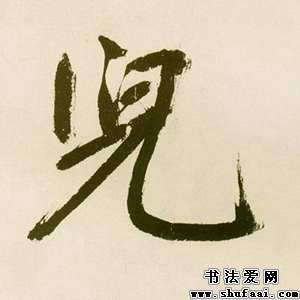 児
书法爱网
www.shufaai.com